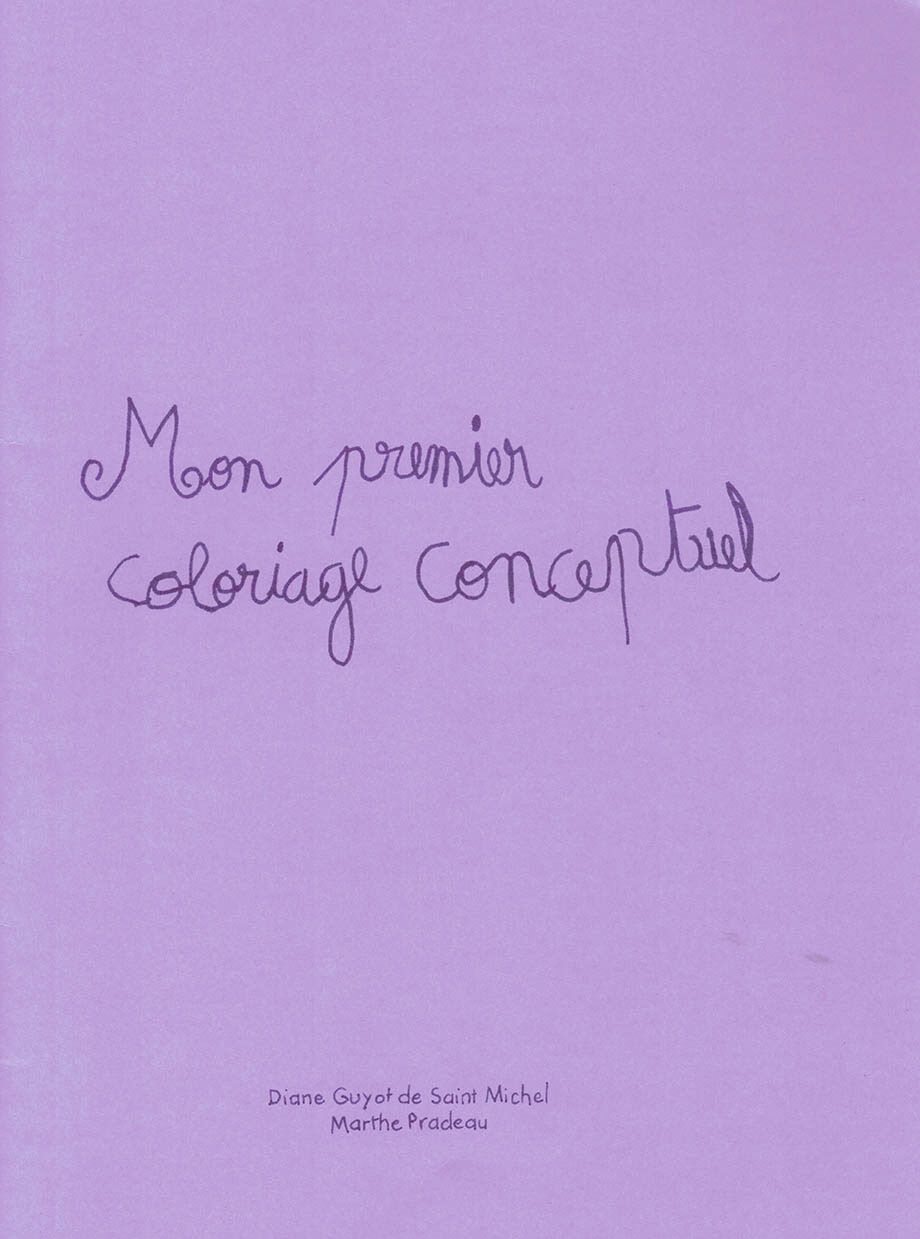 Mon premier
coloriage conceptuel
Diane Guyot de Saint Michel
Marthe Pradeau